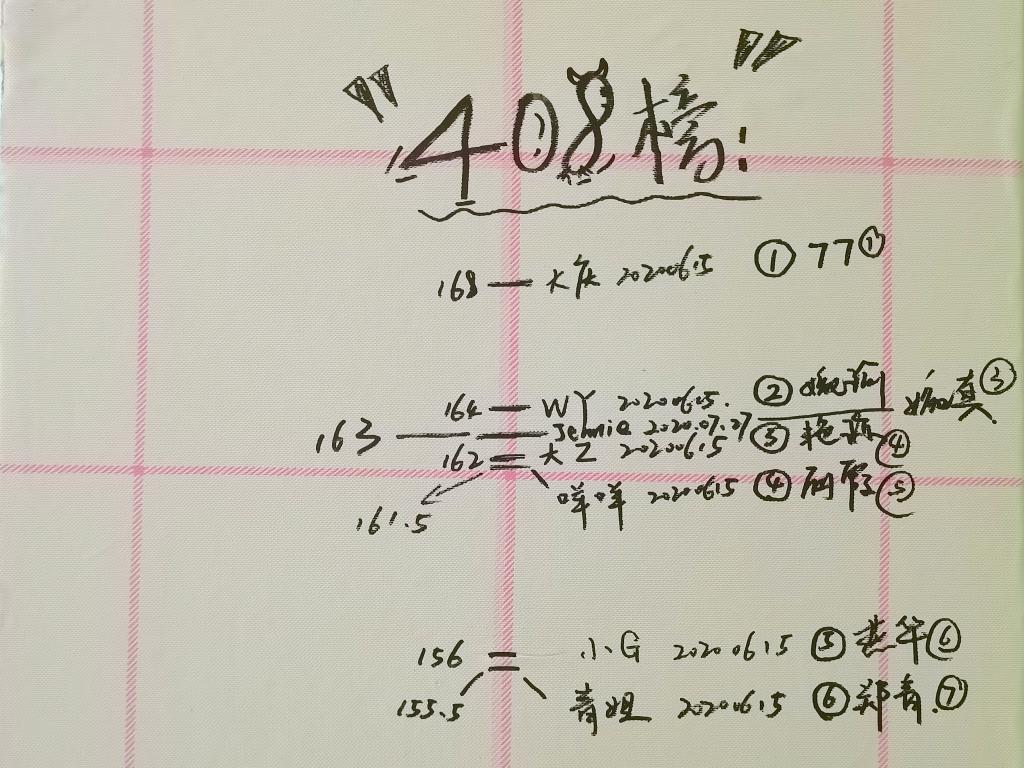 "408榜":
168 — 大庆 20200615 ① 77①
164 — WY 20200615. ②
163 — Jennie 2020.07.27 ③ 艳 ④
162 大Z 20200615
161.5 咩咩 20200615 ④ ⑤
156 小G 20200615 ⑤ 燕华⑥
155.5 青姐 20200615 ⑥ 郑青.⑦